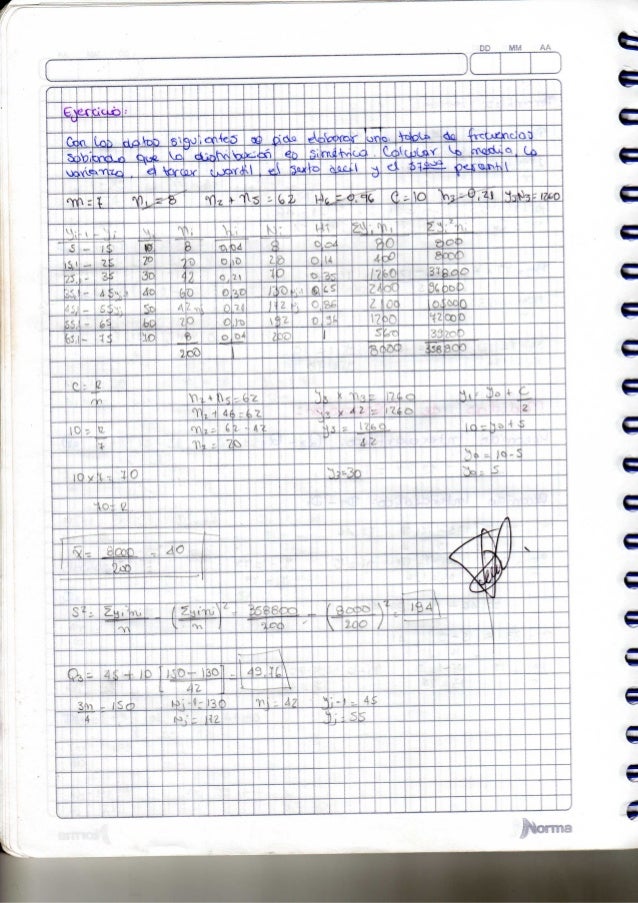 DD MM AA
Ejercicio:
Con los datos siguientes se pide elaborar una tabla de frecuencias
sabiendo que la distribución es simétrica. Calcular la media, la
varianza, el tercer cuartil, el sexto decil y el 37 percentil
m=7 n1=8 n2+n5=62 H6=0,96 C=10 h3=0,21 y3n3=1260
yi-1 - yi yi ni hi Ni Hi Σyi ni Σyi²ni
5 - 15 10 8 0,04 8 0,04 80 800
15,1 - 25 20 20 0,10 28 0,14 400 8000
25,1 - 35 30 42 0,21 70 0,35 1260 37800
35,1 - 45 40 60 0,30 130 0,65 2400 96000
45,1 - 55 50 42 0,21 172 0,86 2100 105000
55,1 - 65 60 20 0,10 192 0,96 1200 72000
65,1 - 75 70 8 0,04 200 1 560 39200
200 1 8000 358800
C = R/m n2+n5=62 y3 x n3 = 1260 y1 = y0 + C/2
n2 + 42=62 y3 x 42 = 1260
10 = R/7 n2 = 62 - 42 y3 = 1260/42 10 = y0 + 5
n2 = 20 y0 = 10-5
10x7 = 70 y3=30 y0 = 5
70= R
x̄ = 8000/200 = 40
S² = Σyi²ni/n - (Σyini/n)² = 358800/200 - (8000/200)² = 194
Q3 = 45 + 10 [150-130/42] = 49,76
3n/4 = 150 Nj-1 = 130 nj = 42 yj-1 = 45
Nj = 172 yj = 55
Norma